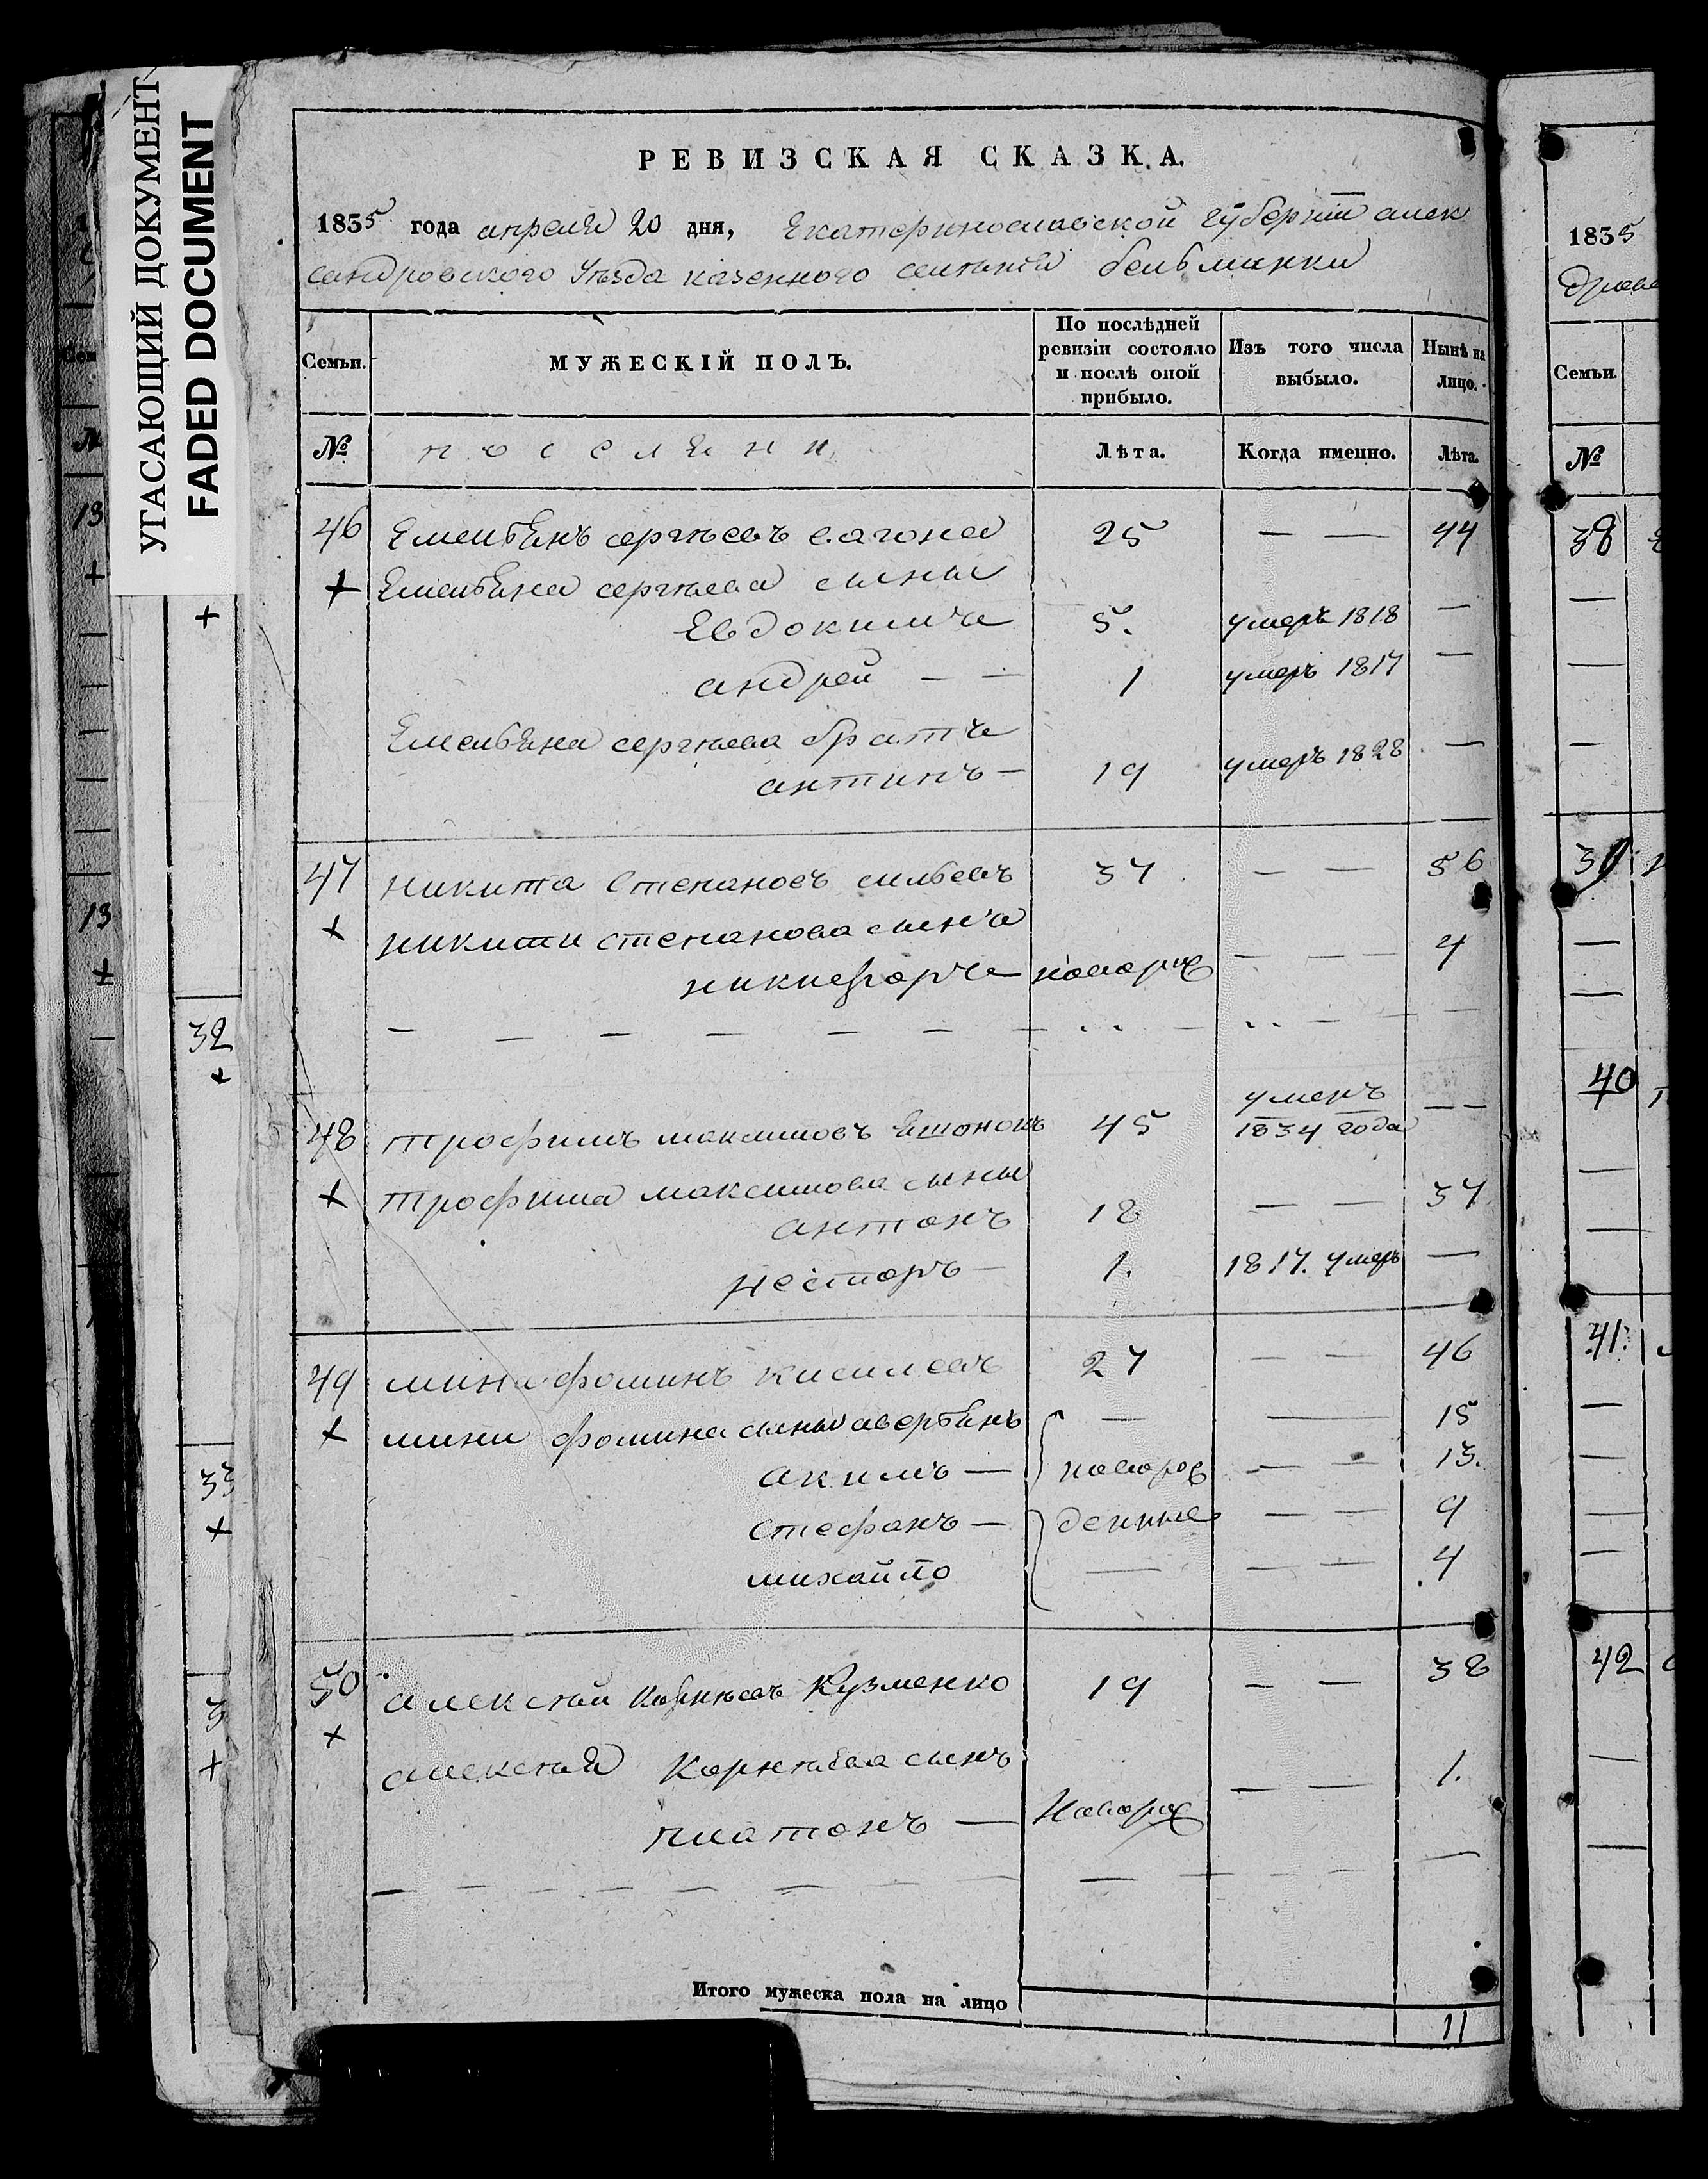 УГАСАЮЩИЙ ДОКУМЕНТ
FADED DOCUMENT
РЕВИЗСКАЯ СКАЗКА.
1835 года апреля 20 дня, Екатеринославской губернїи алек
сандровского уѣзда казенного селенїя бельманки
Семьи. МУЖЕСКІЙ ПОЛЪ. По послѣдней ревизіи состояло и послѣ оной прибыло. Изъ того числа выбыло. Нынѣ на лицо.
№ поселяни Лѣта. Когда именно. Лѣта.
46 Емельянъ сергѣевъ 25 — — 44
+ Емельяна сергѣева сыны
Евдокимъ 5. умеръ 1818 —
андрей — — 1 умеръ 1817 —
Емельяна сергѣева братъ
антипъ — 19 умеръ 1828 —
47 никита Степановъ 37 — — 56
+ никити степанова сынъ
никифоръ — новорж — — — 4
48 трофимъ максимовъ 45 умеръ 1834 года — —
+ трофима максимова сыны
антонъ 18 — — 37
несторъ — 1. 1817. умеръ —
49 мина фоминъ киселевъ 27 — — 46
+ мини фомина сыны аверьянъ — — 15
акимъ — новорож — — 13.
стефанъ — денные — — 9
михайло — — — 4
50 алексѣй корнѣевъ Кузменко 19 — — 38
+
алексѣя Корнѣева сынъ — — 1.
платонъ — Новорж
Итого мужеска пола на лицо 11
1835
Семьи.
№
38
39
40
41
42
13
+
13
+
+
32
+
33
+
3
+